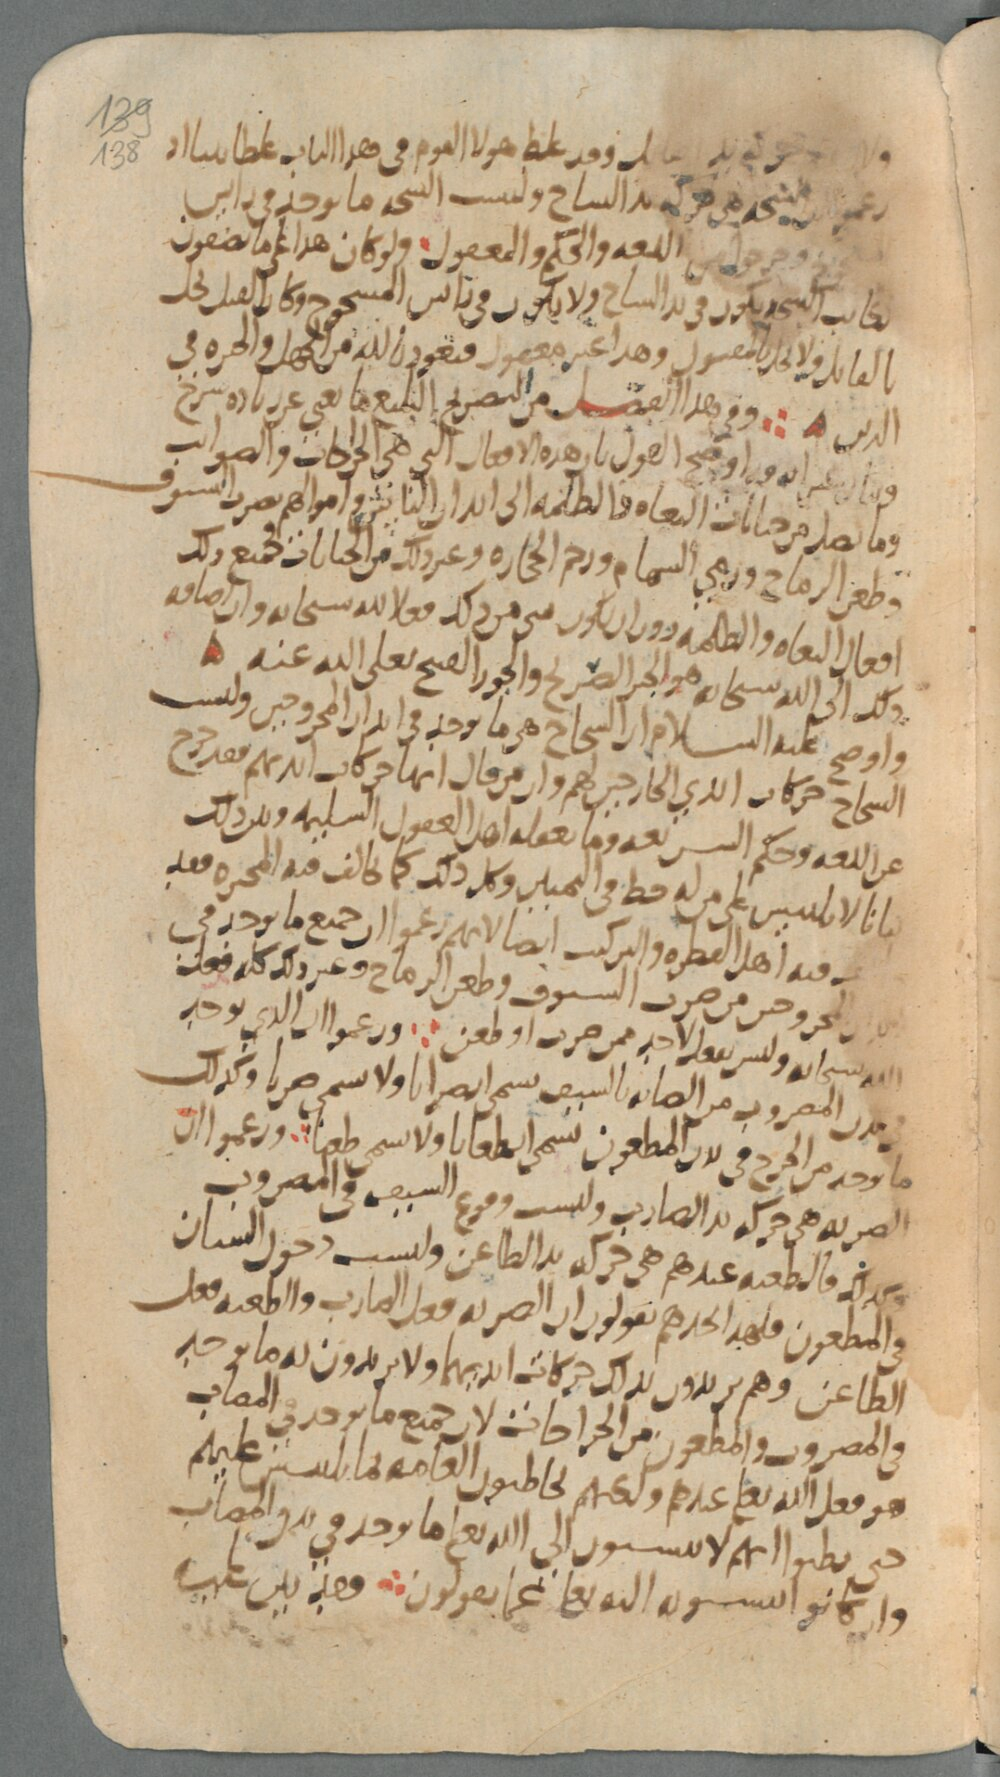 139
138
وقد غلط هولا القوم في هذا الباب غلطا
زعموا ان الشجه هي حركه يد الشاج وليست الشجه ما يوجد في راس
اللغه والحكم والمعقول ولو كان هذا على ما يصفون
لكانت الشجه تكون في يد الشاج ولا تكون في راس المشجوج وكان القتل يحل
بالقاتل ولا يحل بالمقتول وهذا غير معقول فنعوذ بالله من الجهل والحيره في
الدين ه وفي هذا الفصل من التصريح البليغ ما يغني عن زياده شرح
وبيان غير انه قد اوضح القول بان هذه الافعال التي هي الحركات والضرايب
وما يصل من جنايات البغاه والظلمه الى ابدان الناس واموالهم بضرب السيوف
وطعن الرماح ورمي السهام ورجم الحجاره وغير ذلك من الجنايات جميع ذلك
افعال البغاه والظلمه دون ان يكون شي من ذلك فعلا لله سبحانه وان اضافه
ذلك الى الله سبحانه هو الجبر الصريح والجور القبيح تعالى الله عنه ه
واوضح عليه السلام ان الشجاج هو ما يوجد في ابدان المجروحين وليست
الشجاج حركات ايدي الجارحين لهم وان من قال انها حركات ايديهم فقد خرج
عن اللغه وحكم الشريعه وما يعقله اهل العقول السليمه وبين ذلك
بيانا لا يلتبس على من له حظ في التمييز وكل ذلك كما خالف فيه المجبره فقد
فيه اهل الفطره والتركيب ايضا لانهم زعموا ان جميع ما يوجد في
المجروحين من ضرب السيوف وطعن الرماح وغير ذلك كله فعل
الله سبحانه وليس بفعل لاحد ممن ضرب او طعن وزعموا ان الذي يوجد
في بدن المضروب من اصابه بالسيف يسمى انضرابا ولا يسمى ضربا وكذلك
ما يوجد من الجرح في بدن المطعون يسمى انطعانا ولا يسمى طعنا وزعموا ان
الضربه هي حركه يد الضارب وليست وقوع السيف في المضروب
وكذلك فالطعنه عندهم هي حركه يد الطاعن وليست دخول السنان
في المطعون فلهذا تجدهم يقولون ان الضربه فعل الضارب والطعنه فعل
الطاعن وهم يريدون بذلك حركات ايديهما ولا يريدون به ما يوجد
في المضروب والمطعون من الجراحات لان جميع ما يوجد في المصاب
هو فعل الله تعالى عندهم ولكنهم يخاطبون العامه بما يلتبس عليهم
حتى يظنوا انهم لا ينسبون الى الله تعالى ما يوجد في بدن المصاب
وان كانوا ينسبونه الى الله تعالى عما يقولون وقد بين عليه